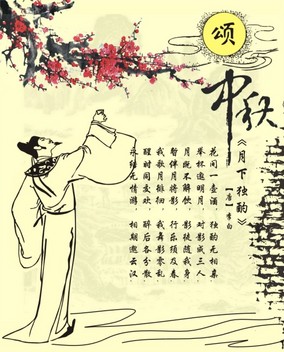 颂
中秋
《月下独酌》
【唐】李白
花间一壶酒，独酌无相亲
举杯邀明月，对影成三人
月既不解饮，影徒随我身
暂伴月将影，行乐须及春
我歌月徘徊，我舞影零乱
醒时同交欢，醉后各分散
永结无情游，相期邈云汉